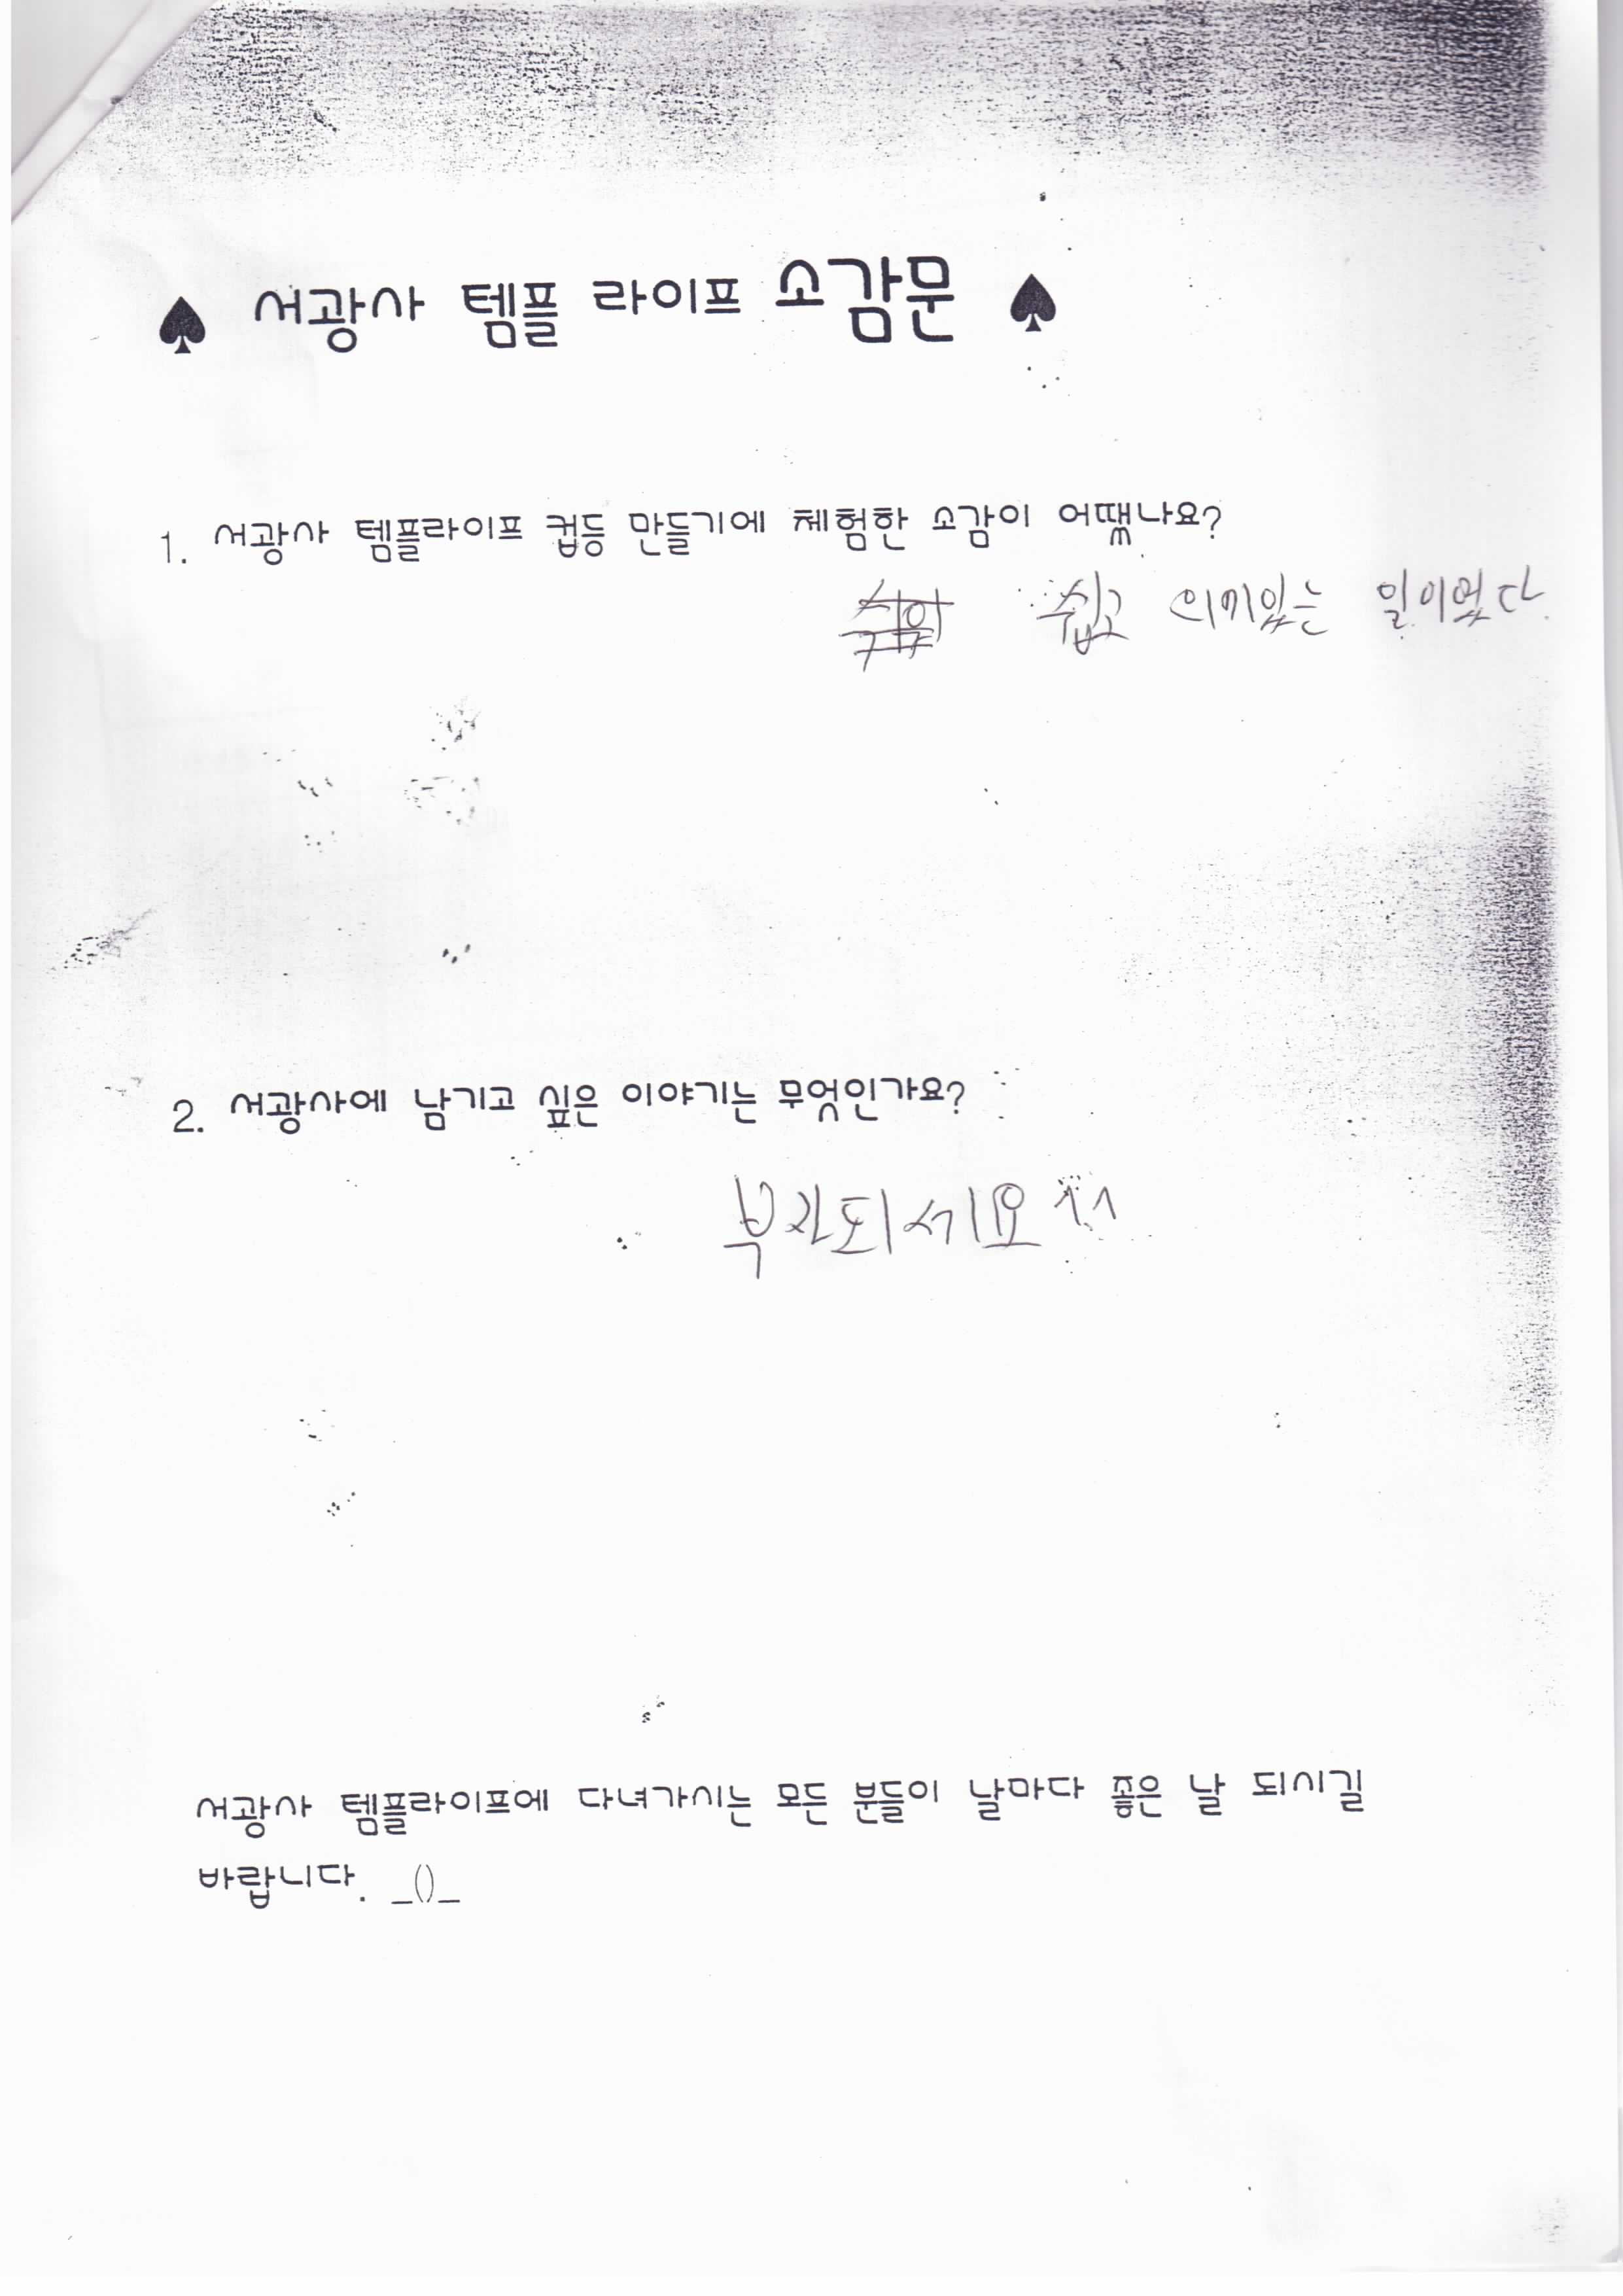 ♠ 서광사 템플 라이프 소감문 ♠
1. 서광사 템플라이프 컵등 만들기에 체험한 소감이 어땠나요?
쉽고 의미있는 일이었다.
2. 서광사에 남기고 싶은 이야기는 무엇인가요?
부자되세요 ^^
서광사 템플라이프에 다녀가시는 모든 분들이 날마다 좋은 날 되시길
바랍니다. _()_